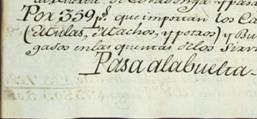 Por 339 ps. que importan los Ca
(Mulas, Machos, y potros) y Bu
gados en las quintas de los Sirv
Pasa a la buelta